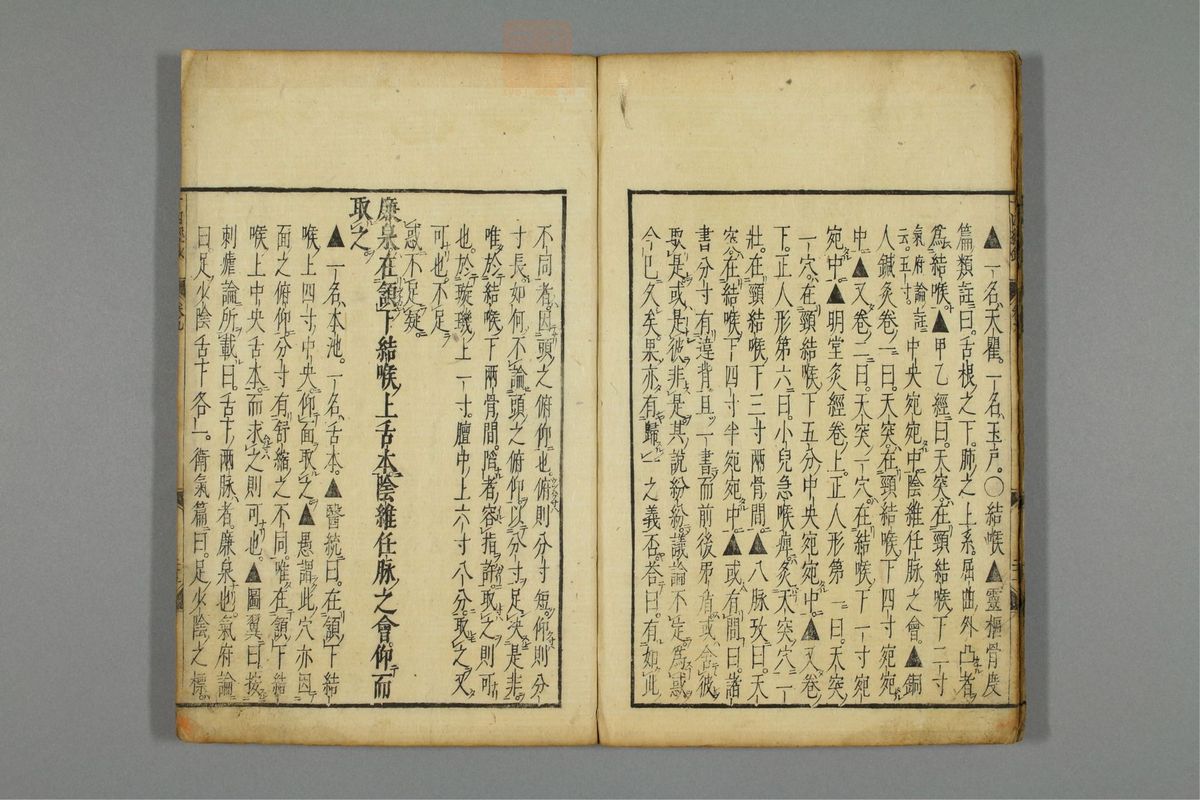 ▲一名天瞿。一名玉戸。○結喉▲靈樞骨度
篇類註曰。舌根之下。肺之上系。屈曲外凸者
為結喉。▲甲乙經曰。天突。在頸結喉下二寸
氣府論註云。五寸。中央宛宛中。陰維任脉之會。▲銅
人鍼灸卷一曰。天突在頸結喉下四寸宛宛
中▲又卷二曰。天突一穴。在結喉下一寸宛
宛中▲明堂灸經卷上。正人形第一曰。天突
一穴。在頸結喉下五分中央宛宛中。▲又卷
下。正人形第六曰。小兒急喉痺。灸天突穴一
壯。在頸結喉下三寸兩骨間。▲八脉攷曰。天
突在結喉下四寸半宛宛中。▲或有問曰。諸
書分寸有違背。且一書而前後矛盾。或舍彼
取是。或是彼非是。其說紛紛。議論不定。為惑
今已久矣。果亦有歸一之義否。荅曰。有。如此
不同者。因頭之俯仰也。俯則分寸短。仰則分
寸長。如何不論頭之俯仰。以分寸足決是非。
唯於結喉下兩骨間。陷者容指許。取之則可
也。於璇璣上一寸。膻中上六寸八分。取之又
可也。不足
惑。不足疑。
廉泉在頷下結喉上舌本陰維任脉之會仰而
取之
▲一名本池。一名舌本。▲醫統曰。在頷下結
喉上四寸。中央仰面取之▲愚謂此穴亦因
面之俯仰。分寸有舒縮之不同。唯在頷下結
喉上中央舌本。而求之則可也。▲圖翼曰按
刺瘧論所載曰。舌下兩脉者。廉泉也。氣府論
曰足少陰舌下各一。衛氣篇曰。足少陰之標。